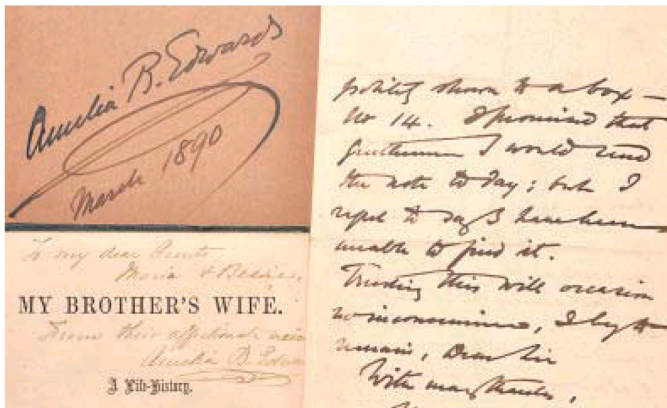 Amelia B. Edwards
March 1890
To my dear Aunts
Maria & Bessie,
MY BROTHER'S WIFE.
From their affectionate niece
Amelia B. Edwar
A Life-History.
politely shown to a box —
No 14. I promised that
gentleman I would send
the note to day; but I
regret to say I have been
unable to find it.
Trusting this will occasion
no inconvenience, I beg to
remain, Dear Sir
With many thanks,